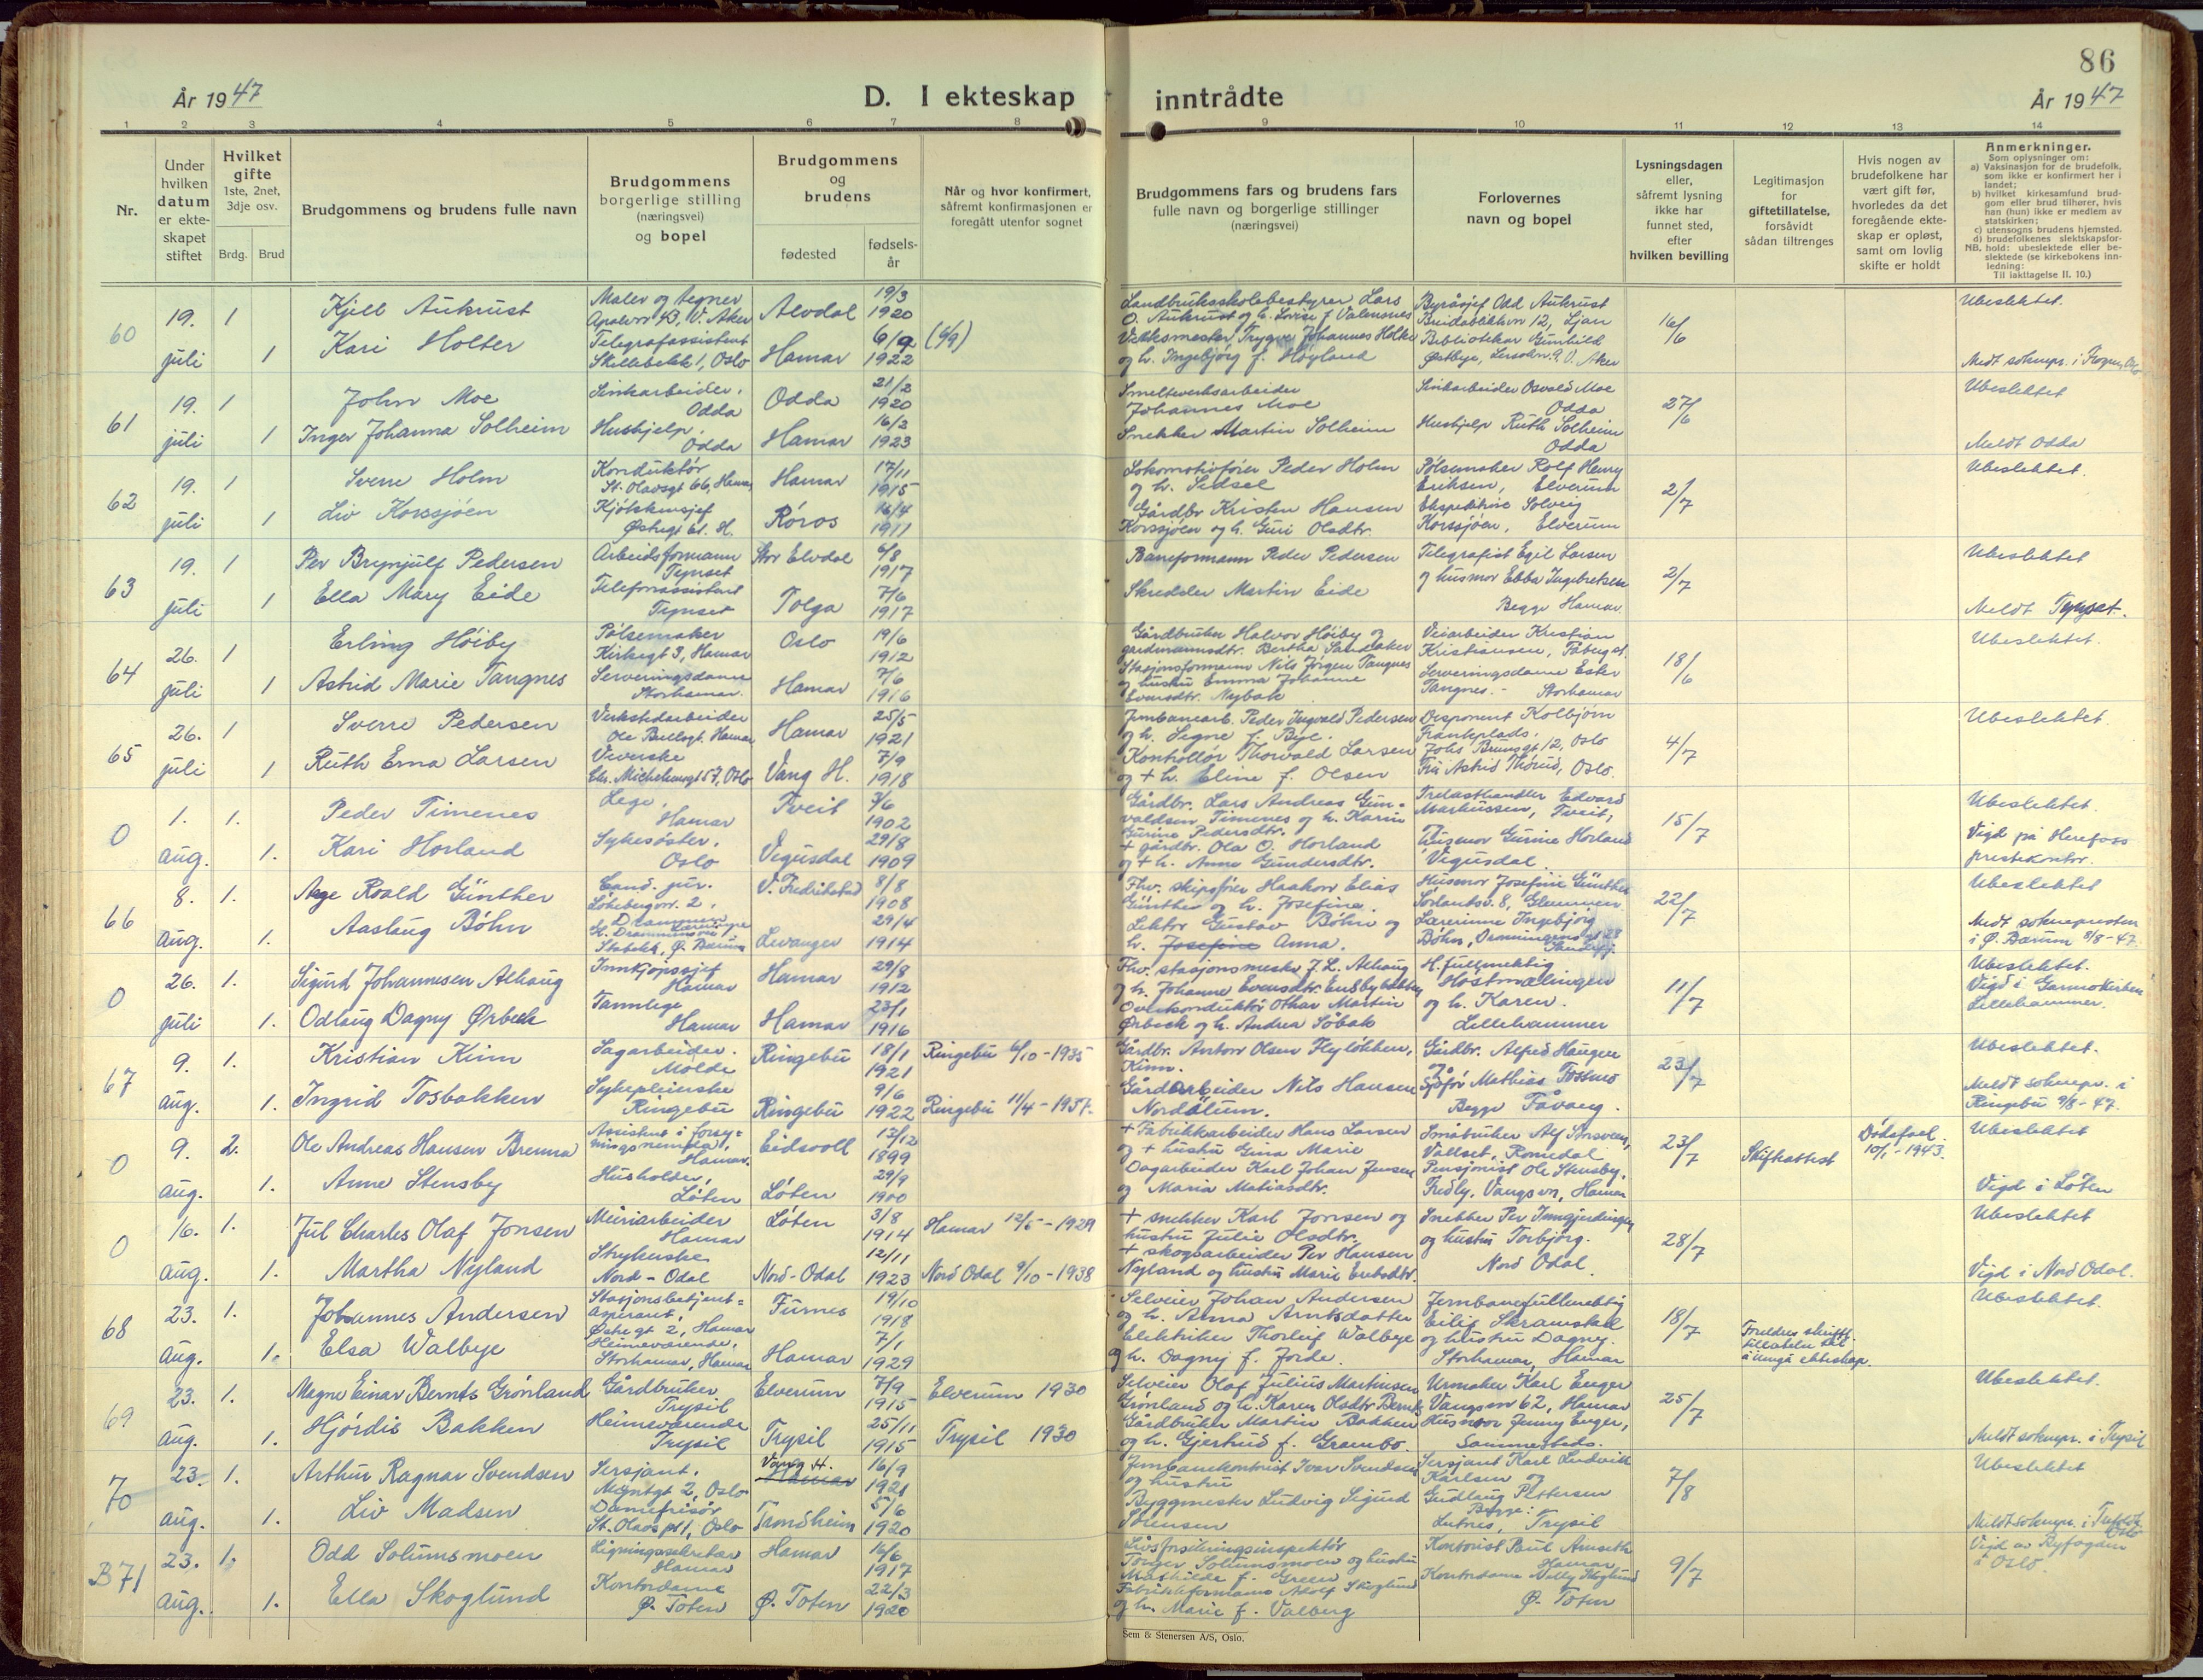 86
År 1947
D. I ekteskap inntrådte
År 1947
1 2 3 4 5 6 7 8 9 10 11 12 13 14
Nr.
Under hvilken datum er ekteskapet stiftet
Hvilket gifte
1ste, 2net, 3dje osv.
Brdg. Brud
Brudgommens og brudens fulle navn
Brudgommens
borgerlige stilling
(næringsvei)
og bopel
Brudgommens
og
brudens
fødested
fødsels-
år
Når og hvor konfirmert,
såfremt konfirmasjonen er
foregått utenfor sognet
Brudgommens fars og brudens fars
fulle navn og borgerlige stillinger
(næringsvei)
Forlovernes
navn og bopel
Lysningsdagen
eller,
såfremt lysning
ikke har
funnet sted,
efter
hvilken bevilling
Legitimasjon
for
giftetillatelse,
forsåvidt
sådan tiltrenges
Hvis nogen av
brudefolkene har
vært gift før,
hvorledes da det
foregående ekte-
skap er opløst,
samt om lovlig
skifte er holdt
Anmerkninger.
Som oplysninger om:
a) Vaksinasjon for de brudefolk,
som ikke er konfirmert her i
landet;
b) hvilket kirkesamfund brud-
gom eller brud tilhører, hvis
han (hun) ikke er medlem av
statskirken;
c) utensogns brudens hjemsted.
d) brudefolkenes slektskapsfor-
NB. hold: ubeslektede eller be-
slektede (se kirkebokens inn-
ledning:
Til iakttagelse II. 10.)
60
19. juli 1
Kjell Aukrust
Maler og tegner
Apalvn 43, V. Aker
Alvdal
19/3 1920
Landbruksskolebestyrer Lars
O. Aukrust og h. Lovise f. Valensnes
Byråsjef Odd Aukrust
Breidablikkvn 12, Ljan
16/6
Ubeslektet.
1
Kari Holter
Telegrafassistent
Skillebekk 1, Oslo
Hamar
6/9 1922
(6/9)
Verksmester Trygve Johannes Holter
og h. Ingebjørg f. Høyland
Bibliotekar Gunhild
Østbye, V. Aker
Meldt soknepr. i Frogner, Oslo
61
19. juli 1
John Moe
Sinkarbeider.
Odda
Odda
21/2 1920
Smelteverksarbeider
Johannes Moe
Sinkarbeider Osvald Moe
Odda
27/6
Ubeslektet
1
Inger Johanna Solheim
Hushjelp.
Odda
Hamar
16/2 1923
Snekker Martin Solheim
Hushjelp Ruth Solheim
Odda
Meldt Odda
62
19. juli 1
Sverre Holm
Konduktør
St. Olavsgt 66, Hamar
Hamar
17/11 1915
Lokomotivfører Peder Holm
og h. Sedsel
Pølsemaker Rolf Henry
Eriksen, Elverum
2/7
Ubeslektet.
1
Liv Korssjøen
Kjøkkensjef
Østregt 61. H.
Røros
16/4 1911
Gårdbr Kristen Hansen
Korssjøen og h. Guri Olsdtr.
Ekspeditrise Solveig
Korssjøen, Elverum
63
19. juli 1
Per Brynjulf Pedersen
Arbeidsformann
Tynset
Stor Elvdal
6/8 1917
Baneformann Peder Pedersen
Telegrafist Egil Larsen
2/7
Ubeslektet
1
Ella Mary Eide
Telefonassistent
Tynset
Tolga
7/6 1917
Skredder Martin Eide
og husmor Ebba Ingebretsen
Begge Hamar.
Meldt Tynset.
64
26. juli 1
Erling Høiby
Pølsemaker
Kirkegt 3, Hamar
Oslo
19/6 1912
Gårdbruker Halvor Høiby og
gardmannsdtr. Bertha Sandaker
Veiarbeider Kristian
Kristiansen, Fåbergt.
18/6
Ubeslektet.
1
Astrid Marie Tangnes
Serveringsdame
Storhamar.
Hamar
7/6 1916
Stasjonsformann Nils Jørgen Tangnes
og hustru Emma Johanne
Evensdtr. Nybak
Serveringsdame Ester
Tangnes. - Storhamar
65
26. juli 1
Sverre Pedersen
Verkstedarbeider
Ole Bullsgt. Hamar
Hamar
25/5 1921
Jernbanearb. Peder Ingvald Pedersen
og h. Signe f. Bye.
Disponent Kolbjørn
Frankplads.
Johs Brunsgt 12, Oslo
4/7
Ubeslektet.
1
Ruth Erna Larsen
Veverske
Chr. Michelsensgt 57, Oslo
Vang H.
7/9 1918
Kontrollør Thorvald Larsen
og + h. Eline f. Olsen
Fru Astrid Thorud, Oslo.
0
1. aug. 1.
Peder Timenes
Lege,
Hamar
Tveit
3/6 1902
Gårdbr. Lars Andreas Gun-
valdsen Timenes og h. Karin
Gurine Pedersdtr.
Trelasthandler Edvard
Markussen, Tveit,
15/7
Ubeslektet.
1.
Kari Horland
Sykesøster,
Oslo
Vegusdal
29/8 1909
+ gårdbr. Ola O. Horland
og + h. Anne Gundersdtr.
Husmor Gurine Horland
Vegusdal
Vigd på Herefoss
prestekontor.
66
8. aug. 1.
Aage Roald Günther
Cand. jur.
Løkebergvn. 2,
Drammen
V. Fredrikstad
8/8 1908
Fhv. skipsfører Haakon Elias
Günther og h. Josefine.
Husmor Josefine Günther
Sørlandsv. 8, Glemmen
22/7
Ubeslektet
1.
Aaslaug Bøhn
Lærerinne
Gl. Drammensvei
Stabekk, Ø. Bærum
Levanger
29/4 1914
Lektor Gustav Bøhn og
h. Josefine Anna.
Lærerinne Ingebjørg
Bøhn, Dronningensgt 28
Sandefj.
Meldt soknepresten
i Ø. Bærum 8/8-47.
0
26. juli 1.
Sigurd Johannesen Alhaug
Innkjøpssjef
Hamar
Hamar
29/8 1912
Fhv. stasjonsmester J. L. Alhaug
og h. Johanne Evensdtr. EnSbybakken
H.fullmektig
Høstmælingen
11/7
Ubeslektet.
1.
Odlaug Dagny Ørbeck
Tannlege
Hamar
Hamar
23/1 1916
Overkonduktør Othar Martin
Ørbeck og h. Andrea Søbak
og h. Karen.
Lillehammer
Vigd i Garmokirken
Lillehammer.
67
9. aug. 1.
Kristian Kinn
Sagarbeider.
Molde
Ringebu
18/1 1921
Ringebu 6/10-1935
Gårdbr. Anton Olsen Flyløkken,
Kinn.
Gårdbr. Alfred Haugen
og
23/7
Ubeslektet.
1.
Ingrid Tosbakken
Sykepleierske
Ringebu
Ringebu
9/6 1922
Ringebu 11/4-1937.
Gårdarbeider Nils Hansen
Nordålum.
Sjåfør Mathias Tosmo
Begge Fåvang.
Meldt soknepr. i
Ringebu 9/8-47.
0
9. aug. 2.
Ole Andreas Hansen Brenna
Assistent i forsy-
ningsnemnda,
Hamar.
Eidsvoll
13/12 1899
+ Fabrikkarbeider Hans Larsen
og + hustru Gina Marie
Småbruker Alf Storsveen,
Vallset, Romedal
23/7
Skifteattest
Dødsfall.
10/1-1943.
Ubeslektet
1.
Anne Stensby
Husholder,
Løten
Løten
29/9 1900
Dagarbeider Karl Johan Jensen
og Maria Matiasdtr.
Pensjonist Ole Stensby,
Fredly, Vangsvn, Hamar
Vigd i Løten
0
16. aug. 1.
Jul Charles Olaf Jonsen
Meieriarbeider
Hamar
Løten
3/8 1914
Hamar 12/5-1929
+ snekker Karl Jonsen og
hustru Julie Olsdtr.
Snekker Per Inngjerdingen
og hustru Torbjørg.
28/7
Ubeslektet
1.
Martha Nyland
Strykerske
Nord-Odal
Nord-Odal
12/11 1923
Nord Odal 9/10-1938
+ skogsarbeider Per Hansen
Nyland og hustru Marie Eriksdtr.
Nord Odal
Vigd i Nord Odal.
68
23. aug. 1.
Johannes Andersen
Stasjonsbetjent-
aspirant,
Østregt 2, Hamar
Furnes
19/10 1918
Selveier Johan Andersen
og h. Anna Arntsdatter
Jernbanefullmektig
Eilif Skramstad
18/7
Ubeslektet.
1.
Elsa Walbye
Heimeværende,
Storhamar, Hamar
Hamar
7/1 1929
Elektriker Thorleif Walbye
og h. Dagny f. Jorde.
og hustru Dagny.
Storhamar, Hamar
Foreldres skriftl.
tillatelse til
å inngå ekteskap.
69
23. aug. 1.
Magne Einar Bernts Grønland
Gårdbruker
Trysil
Elverum
7/9 1915
Elverum 1930
Selveier Olaf Julius Martinsen
Grønland og h. Karen Olsdtr Bernts
Urmaker Karl Enger
Vangsvn 62, Hamar
25/7
Ubeslektet.
1.
Hjørdis Bakken
Heimeværende
Trysil
Trysil
25/11 1915
Trysil 1930
Gårdbruker Martin Bakken
og h. Gjertrud f. Grambo.
Husmor Jenny Enger,
Sammesteds.
Meldt soknepr. i Trysil
70
23. aug. 1.
Arthur Ragnar Svendsen
Sersjant.
Myntgt 2, Oslo
Vang H.
Hamar
16/9 1921
Jernbanekontorist Ivar Svendsen
og hustru
Sersjant Karl Ludvik
Karlsen og
7/8
Ubeslektet
1.
Liv Madsen
Damefrisør
St. Olavs pl 1, Oslo
Trondheim
5/6 1920
Byggmester Ludvig Sigurd
Sørensen
Gudlaug Pettersen
Begge:
Lutnes, Trysil
Meldt soknepr. i
Oslo
B 71
23. aug. 1.
Odd Solumsmoen
Ligningssekretær
Hamar
Hamar
16/6 1917
Livsforsikringsinspektør
Tønger Solumsmoen og hustru
Mathilde f. Green
Kontorist Paul Amseth
Hamar
9/7
Vigd av Byfogden
i Oslo.
1.
Ella Skoglund
Kontordame
Ø. Toten
Ø. Toten
22/3 1920
Fabrikkformann Adolf Skoglund
og h. Marie f. Valberg
Kontordame Nelly Skoglund
Ø. Toten
Sem & Stenersen A/S, Oslo.